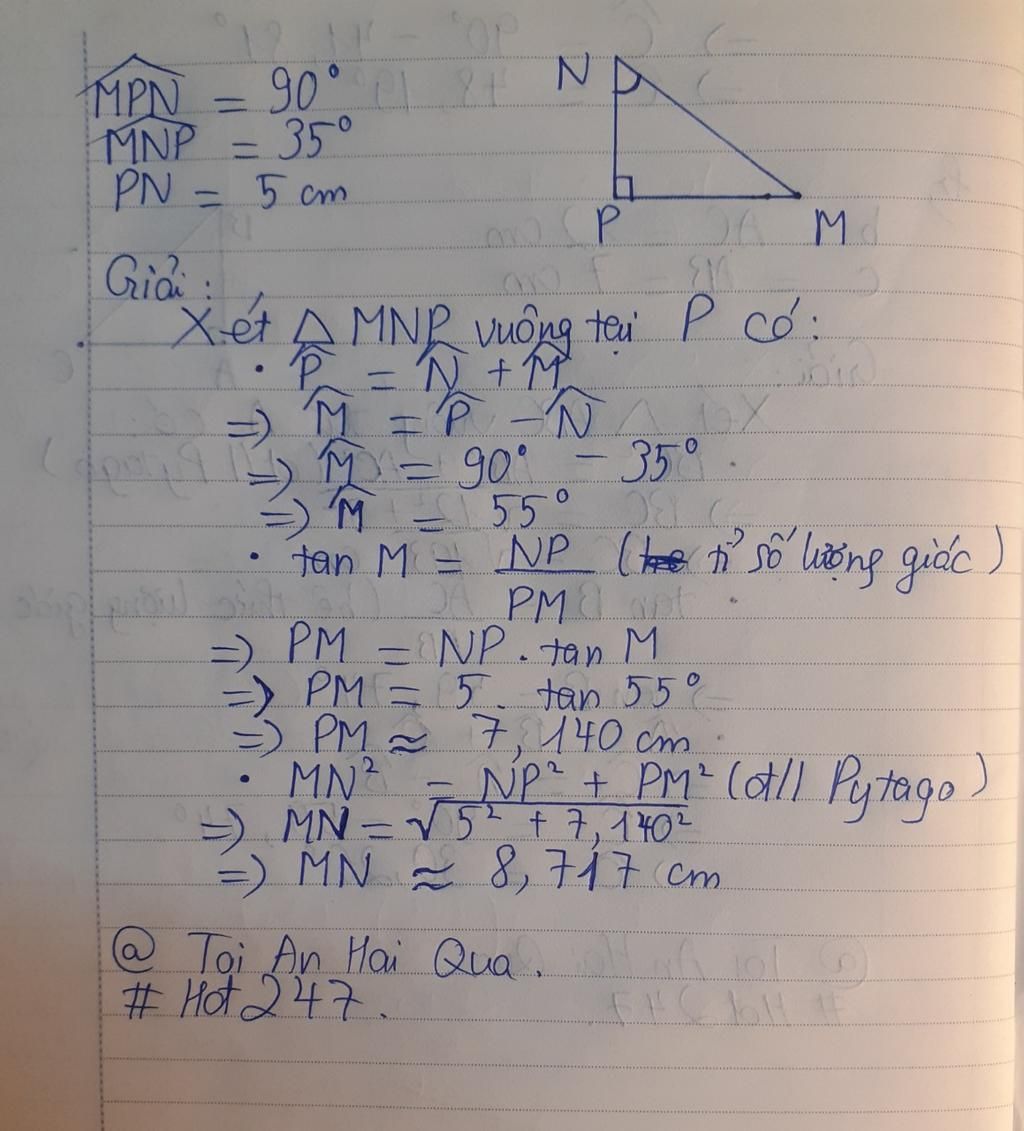 MPN = 90°
MNP = 35°
PN = 5 cm
N
P
M
Giải:
Xét △ MNP vuông tại P có:
• P̂ = N̂ + M̂
=> M̂ = P̂ - N̂
=> M̂ = 90° - 35°
=> M̂ = 55°
• tan M = NP/PM (tỉ số lượng giác)
=> PM = NP . tan M
=> PM = 5 . tan 55°
=> PM ≈ 7,140 cm
• MN² = NP² + PM² (đ/l Pytago)
=> MN = √5² + 7,140²
=> MN ≈ 8,717 cm
@ Toi An Hai Qua.
# Hot 247.